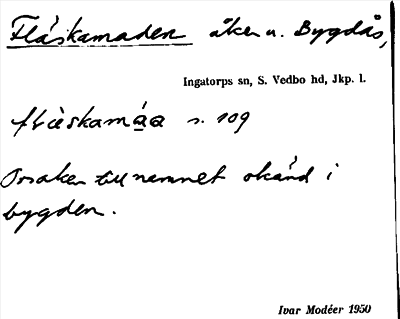 Fläskamaden åker u. Bygdås,
Ingatorps sn, S. Vedbo hd, Jkp. l.
flèskamáa s. 109
Orsaken till namnet okänd i
bygden.
Ivar Modéer 1950